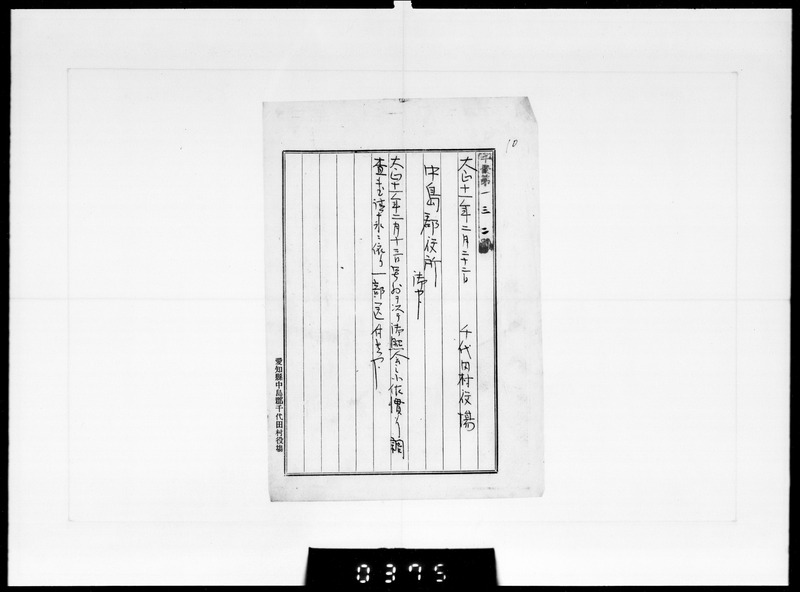 10
千番第一三二號
大正十一年二月二十二日 千代田村役場
中島郡役所
御中
大正十一年二月十三日号外ヲ以テ御照会小作慣行調
査書請求ニ依リ一部送付
愛知縣中島郡千代田村役場
0375